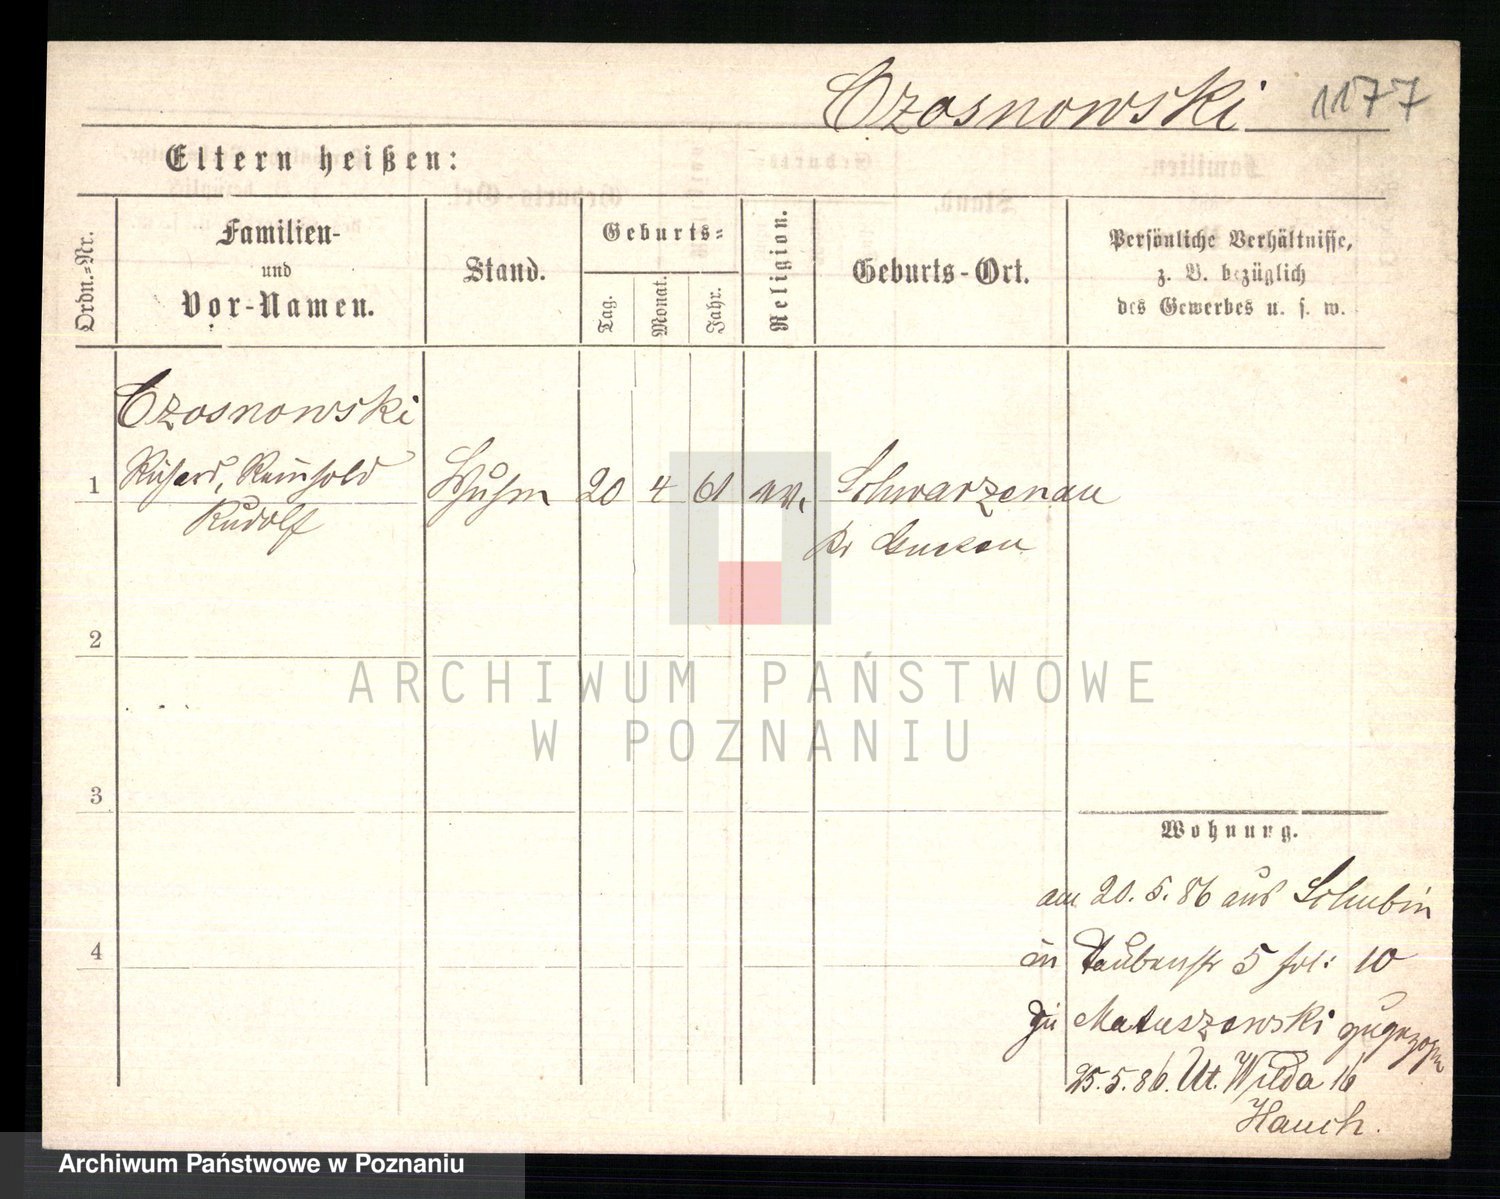 Czosnowski 1177
Eltern heißen:
Ordn.=Nr.
Familien-
und
Vor-Namen.
Stand.
Geburts=
Tag.
Monat.
Jahr.
Religion.
Geburts-Ort.
Persönliche Verhältnisse,
z. B. bezüglich
des Gewerbes u. s. w.
Czosnowski
1 Richard, Reinhold 20 4 61 Schwarzenau
Rudolf
Kr Gnesen
2
3
4
Wohnung.
am 20. 5. 86 aus Schubin
in Taubenstr 5 fol: 10
zu Matuszewski zugezogen
25. 5. 86. Ut. Wilda 16
Hauch.
ARCHIWUM PAŃSTWOWE
W POZNANIU
Archiwum Państwowe w Poznaniu